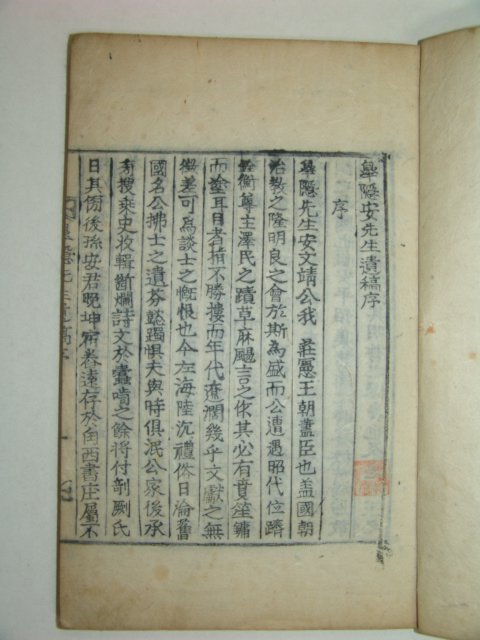 皐隱安先生遺稿序
序
皐隱先生安文靖公我 莊憲王朝藎臣也盖國朝
治教之隆明良之會於斯為盛而公遭遇昭代位躋
衡尊主澤民之蹟草麻颺言之作其必有賁笙鏞
而塗耳目者指不勝摟而年代遼濶幾乎文獻之無
徵差可為談士之慨恨也今左海陸沉禮俗日淪舊
國名公拂士之遺芬懿躅惧夫與時俱泯公家後承
旁搜乘史收輯斷爛詩文於蠹嚙之餘將付剞劂氏
日其傍後孫安君晩坤甫袖卷遠存於角西書庄屬不